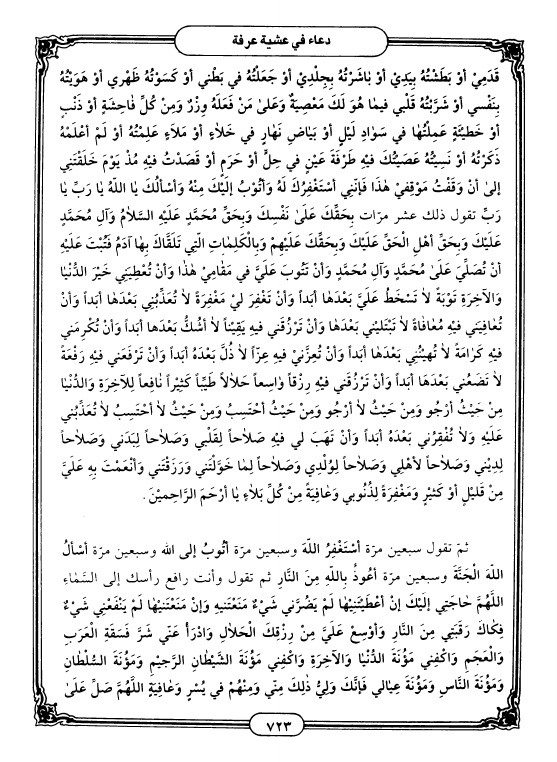 دعاء في عشية عرفة
قَدَمِيْ أوْ بَطَشْتُهُ بِيَدِيْ أوْ بَاشَرْتُهُ بِجِلْدِيْ أوْ جَعَلْتُهُ في بَطْني أوْ كَسَوْتُهُ ظَهْري أوْ هَوَيْتُهُ
بِنَفْسي أوْ شَرَّبْتُهُ قَلْبي فيمَا هُوَ لَكَ مَعْصِيَةٌ وَعَلىٰ مَنْ فَعَلَهُ وِزْرٌ وَمِنْ كُلِّ فَاحِشَةٍ أوْ ذَنْبٍ
أوْ خَطيئَةٍ عَمِلْتُهَا في سَوَادِ لَيْلٍ أوْ بَيَاضِ نَهَارٍ في خَلَاءٍ أوْ مَلَاءٍ عَلِمْتُهُ أوْ لَمْ أعْلَمْهُ
ذَكَرْتُهُ أوْ نَسيْتُهُ عَصَيْتُكَ فيْهِ طَرْفَةَ عَيْنٍ في حِلٍّ أوْ حَرَمٍ أوْ قَصَدْتُ فيْهِ مُذْ يَوْمَ خَلَقْتَني
إلىٰ أنْ وَقَفْتُ مَوْقِفيْ هٰذَا فَإنَّني أسْتَغْفِرُكَ لَهُ وَأتُوْبُ إلَيْكَ مِنْهُ وَأسْألُكَ يَا اللهُ يَا رَبِّ يَا
رَبِّ تقول ذلك عشر مرّات بِحَقِّكَ عَلىٰ نَفْسِكَ وَبِحَقِّ مُحَمَّدٍ عَلَيْهِ السَّلامُ وَآلِ مُحَمَّدٍ
عَلَيْكَ وَبِحَقِّ أهْلِ الْحَقِّ عَلَيْكَ وَبِحَقِّكَ عَلَيْهِمْ وَبِالْكَلِمَاتِ الَّتي تَلَقَّاكَ بِهَا آدَمُ فَتُبْتَ عَلَيْهِ
أنْ تُصَلِّيَ عَلىٰ مُحَمَّدٍ وَآلِ مُحَمَّدٍ وَأنْ تَتُوْبَ عَلَيَّ في مَقَامِيْ هٰذَا وَأنْ تُعْطِيَني خَيْرَ الدُّنْيَا
وَالآخِرَةِ تَوْبَةً لاَ تَسْخَطُ عَلَيَّ بَعْدَهَا أبَداً وَأنْ تَغْفِرَ لِيْ مَغْفِرَةً لاَ تُعَذِّبُني بَعْدَهَا أبَداً وَأنْ
تُعَافِيَني فيْهِ مُعَافَاةً لاَ تَبْتَلِيْني بَعْدَهَا وَأنْ تَرْزُقَني فيهِ يَقِيْناً لاَ أشُكُّ بَعْدَهَا أبَداً وَأنْ تُكْرِمَني
فيْهِ كَرَامَةً لاَ تُهيْنُني بَعْدَهَا أبَداً وَأنْ تُعِزَّنيْ فيهِ عِزّاً لاَ ذُلَّ بَعْدَهُ أبَداً وَأنْ تَرْفَعَني فيْهِ رِفْعَةً
لاَ تَضَعُني بَعْدَهَا أبَداً وَأنْ تَرْزُقَني فيْهِ رِزْقاً وَاسِعاً حَلاَلاً طَيِّباً كَثيْراً نَافِعاً لِلآخِرَةِ وَالدُّنْيَا
مِنْ حَيْثُ أرْجُو وَمِنْ حَيْثُ لاَ أرْجُو وَمِنْ حَيْثُ أحْتَسِبُ وَمِنْ حَيْثُ لاَ أحْتَسِبُ لاَ تُعَذِّبُني
عَلَيْهِ وَلاَ تُفْقِرُني بَعْدَهُ أبَداً وَأنْ تَهَبَ لي فيْهِ صَلاَحاً لِقَلْبي وَصَلاَحاً لِبَدَني وَصَلاَحاً
لِدِيْني وَصَلاَحاً لأهْلي وَصَلاَحاً لِوُلْدي وَصَلاَحاً لِمَا خَوَّلْتَني وَرَزَقْتَني وَأنْعَمْتَ بِهِ عَلَيَّ
مِنْ قَليْلٍ أوْ كَثيْرٍ وَمَغْفِرَةً لِذُنُوبي وَعَافِيَةً مِنْ كُلِّ بَلاَءٍ يَا أرْحَمَ الرَّاحِميْنَ.
ثمّ تقول سبعين مرّة أسْتَغْفِرُ اللهَ وسبعين مرّة أتُوبُ إلى الله وسبعين مرّة أسْألُ
اللهَ الْجَنَّةَ وسبعين مرّة أعُوذُ بِاللهِ مِنَ النَّارِ ثم تقول وأنت رافع رأسك إلى السَّمَاءِ
اللَّهُمَّ حَاجَتي إلَيْكَ إنْ أعْطَيْتَنِيْهَا لَمْ يَضُرَّني شَيْءٌ مَنَعْتَنِيهِ وَإنْ مَنَعْتَنِيْهَا لَمْ يَنْفَعْني شَيْءٌ
فِكَاكَ رَقَبَتي مِنَ النَّارِ وَأوْسِعْ عَلَيَّ مِنْ رِزْقِكَ الْحَلاَلِ وَادْرَأْ عَنّي شَرَّ فَسَقَةِ الْعَرَبِ
وَالْعَجَمِ وَاكْفِني مَؤُنَةَ الدُّنْيَا وَالآخِرَةِ وَاكْفِني مَؤُنَةَ الشَّيْطَانِ الرَّجيْمِ وَمَؤُنَةَ السُّلْطَانِ
وَمَؤُنَةَ النَّاسِ وَمَؤُنَةَ عِيَالي فَإنَّكَ وَلِيُّ ذٰلِكَ مِنّي وَمِنْهُمْ في يُسْرٍ وَعَافِيَةٍ اللَّهُمَّ صَلِّ عَلىٰ
٧٢٣